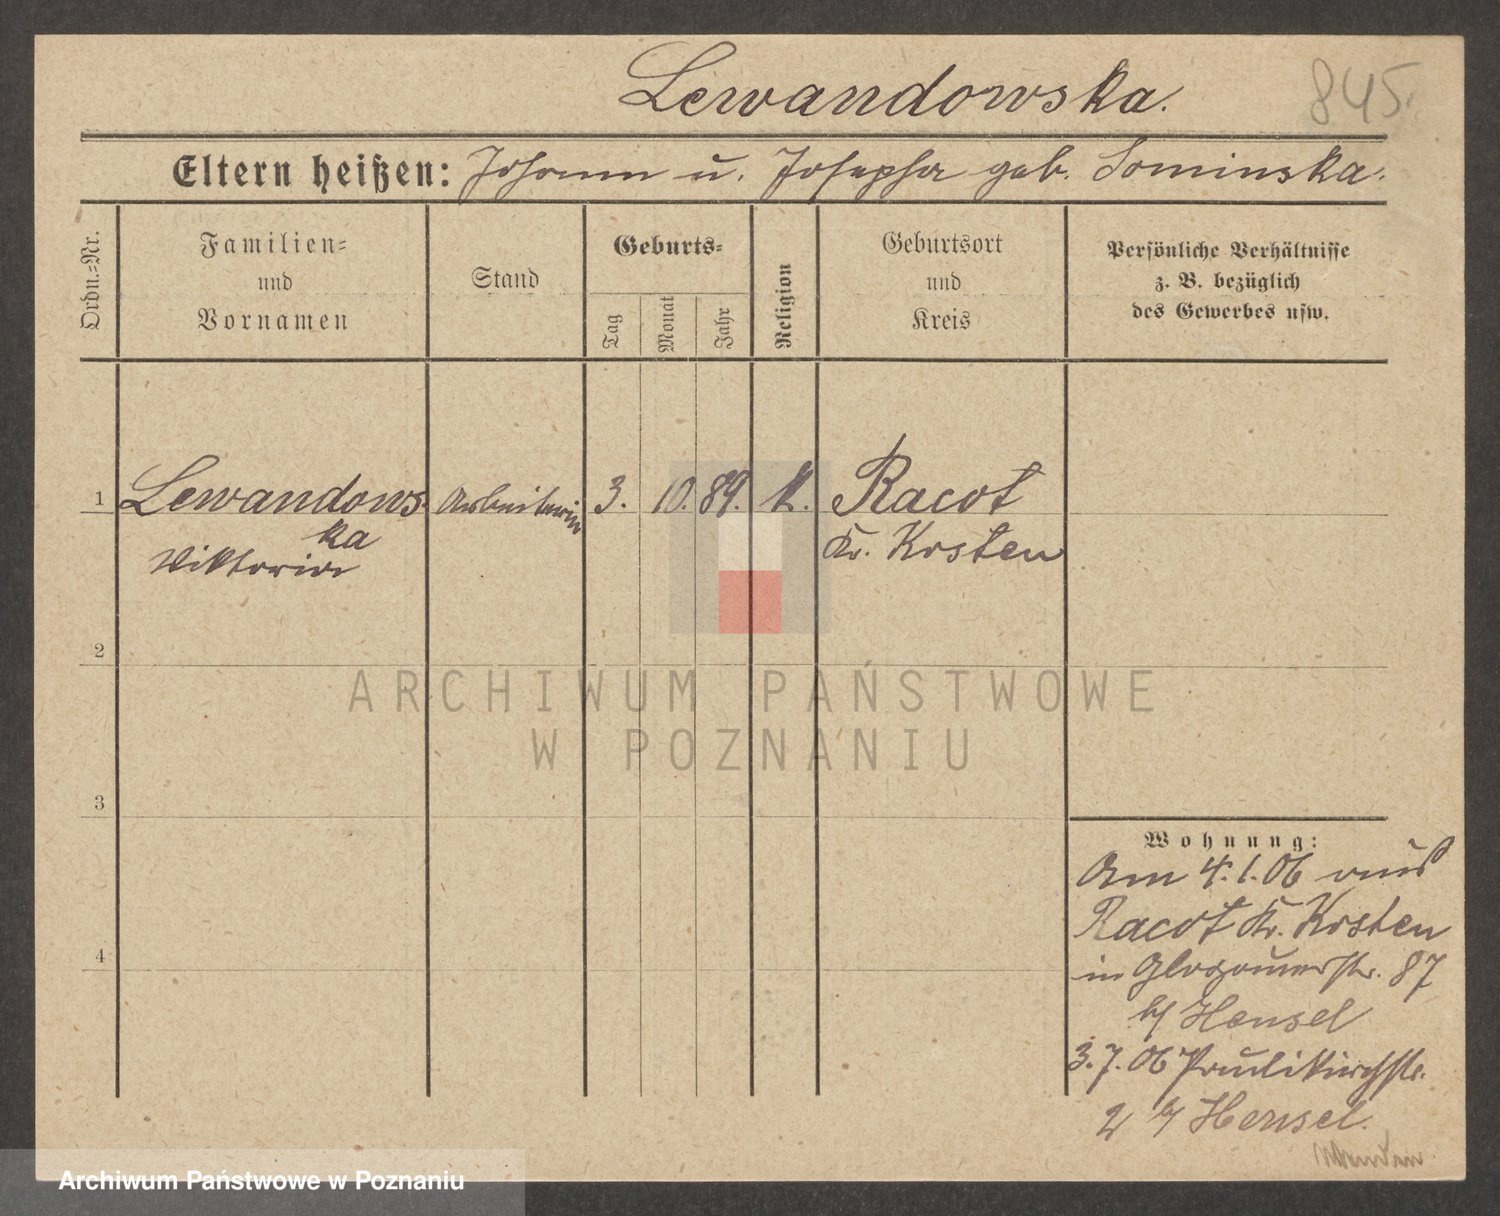 Lewandowska.
845.
Eltern heißen: Johann u. Josepha geb. Sominska.
Ordn.=Nr.
Familien=
und
Vornamen
Stand
Geburts=
Tag
Monat
Jahr
Religion
Geburtsort
und
Kreis
Persönliche Verhältnisse
z. B. bezüglich
des Gewerbes usw.
1 Lewandows- Arbeiterin 3. 10. 89. k. Racot
ka
Kr. Kosten
Viktoria
2
3
4
ARCHIWUM PAŃSTWOWE
W POZNANIU
Wohnung:
Am 4.1.06 aus
Racot Kr. Kosten
in Glogauerstr. 87
b/ Hensel
3.7.06 Paulikirchstr.
2 b/ Hensel.
Archiwum Państwowe w Poznaniu